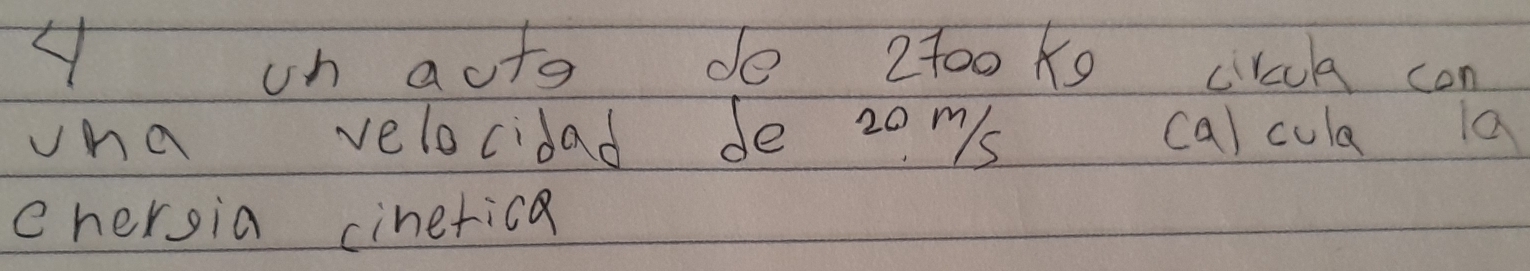 4 un auto de 2700 kg circula con
una velocidad de 20 m/s calcula la
energia cinetica